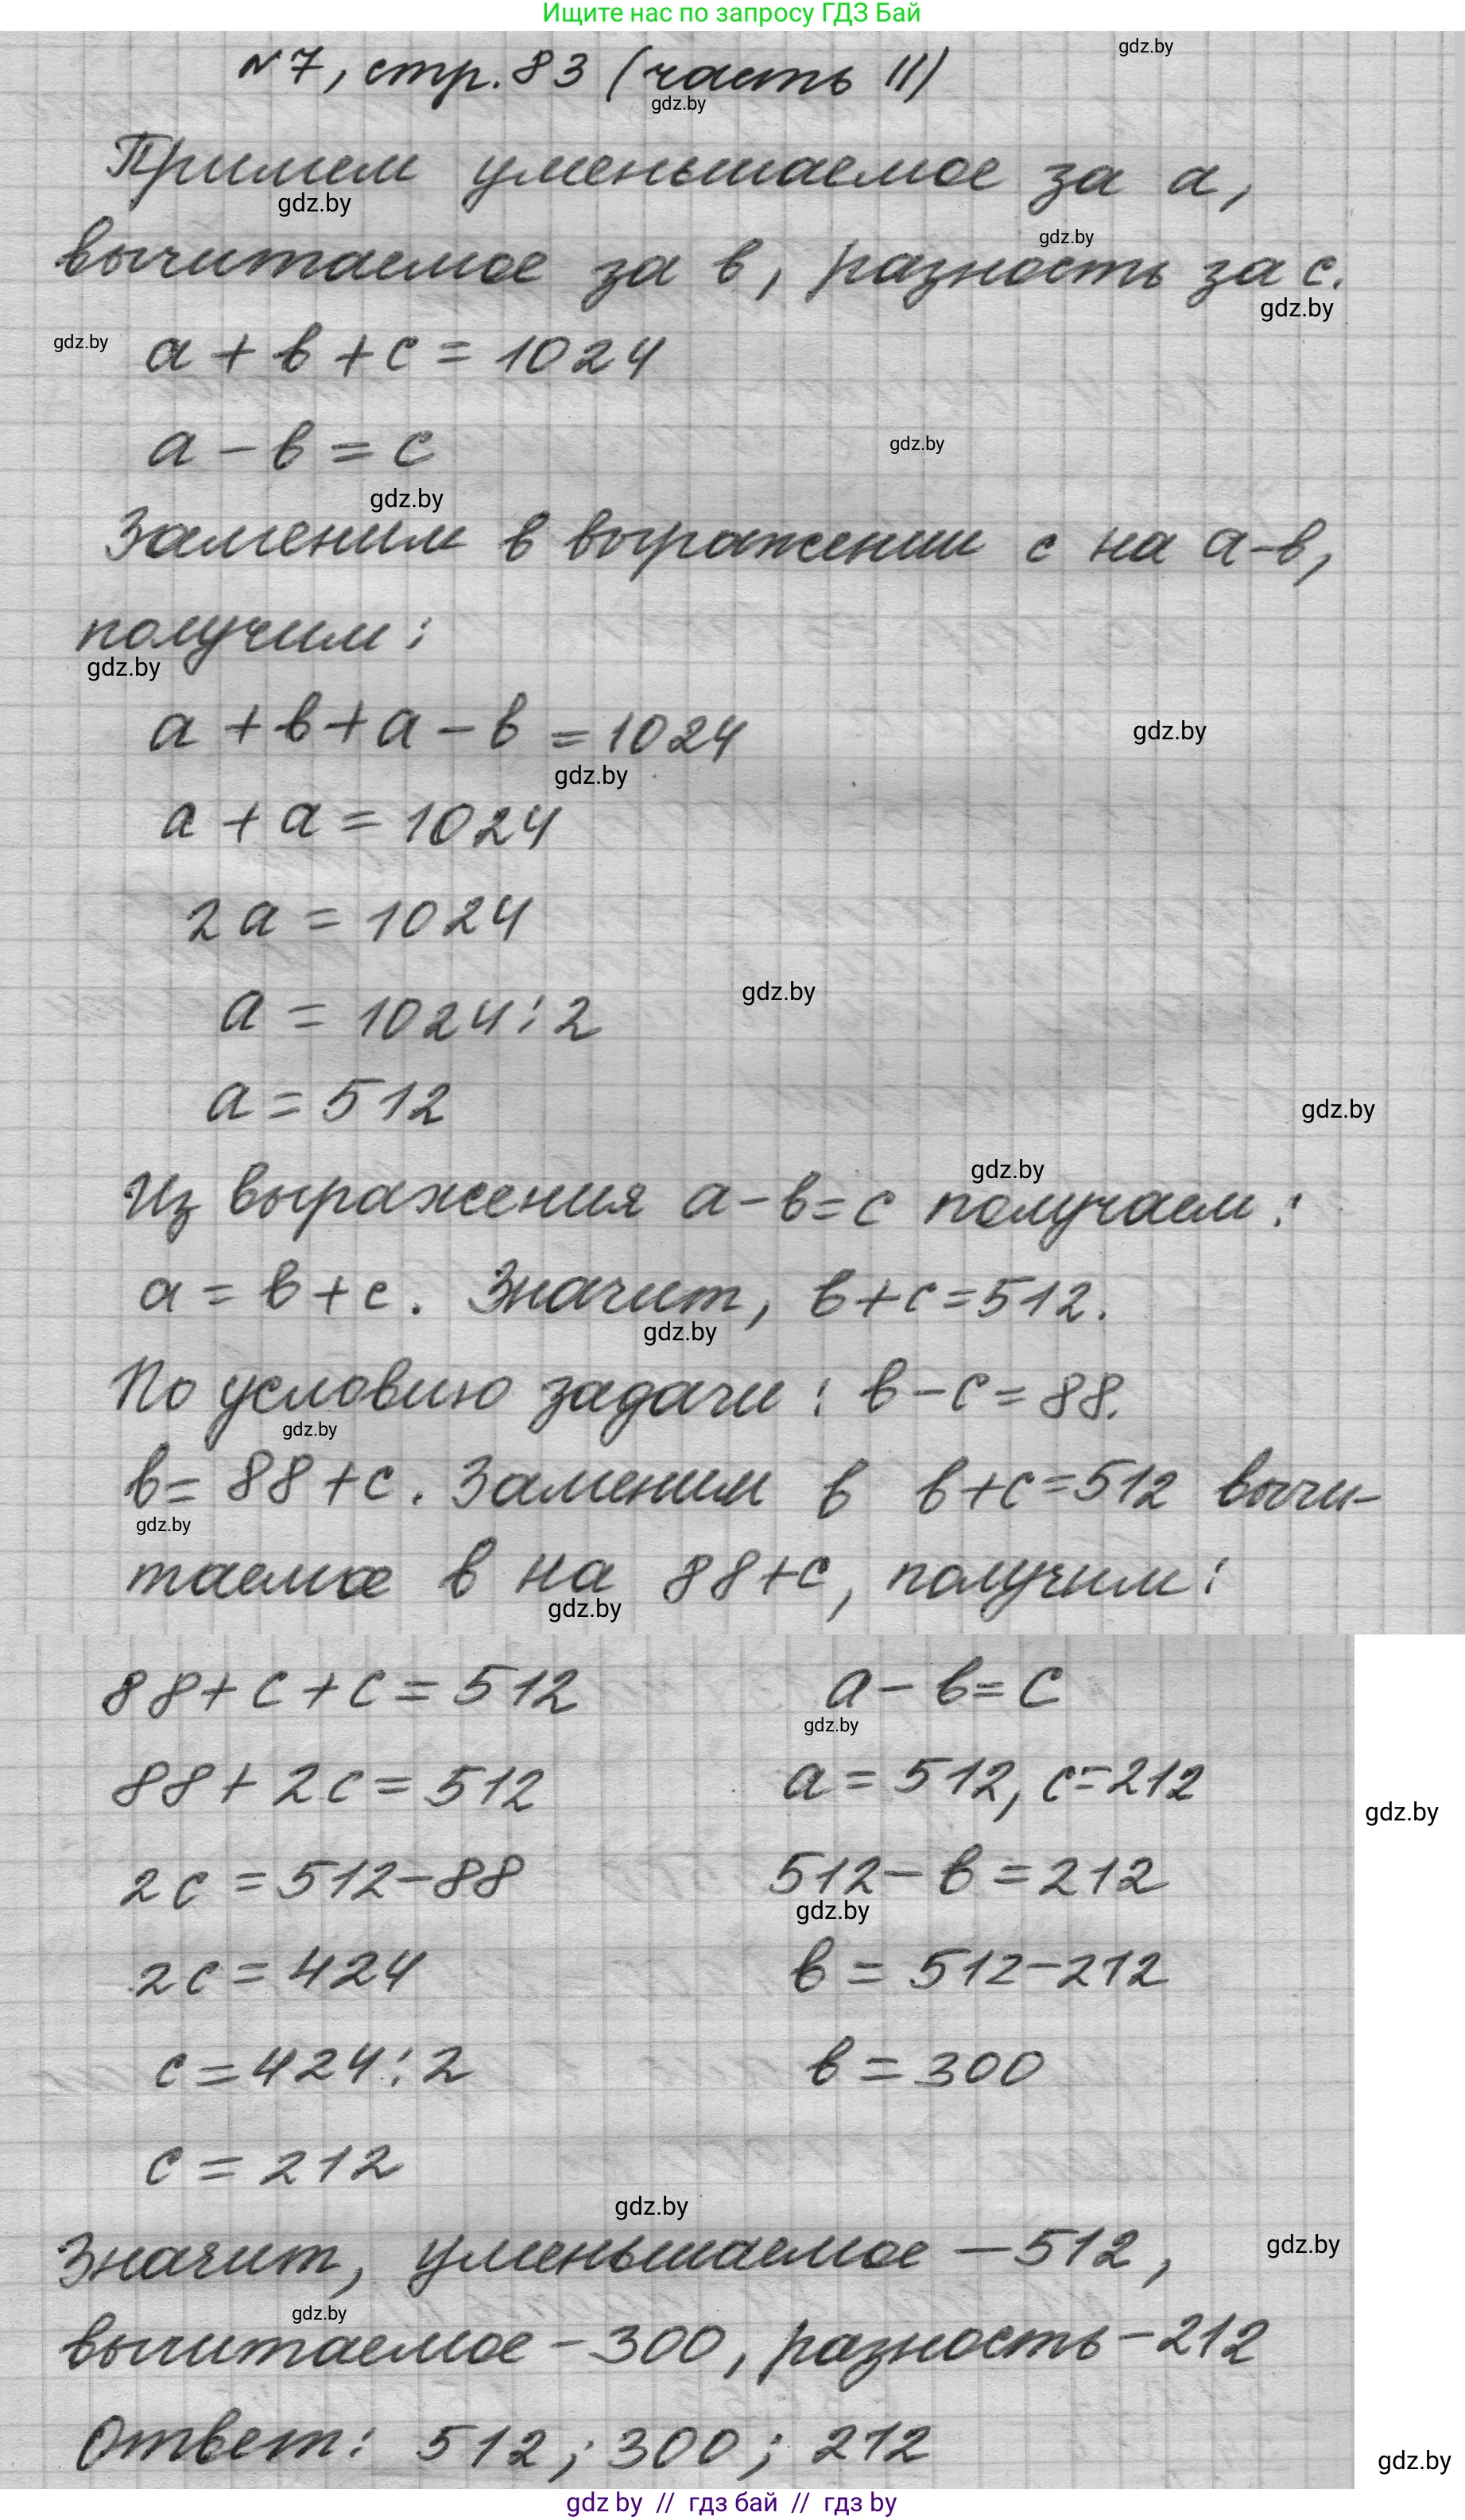 Ищите нас по запросу ГДЗ Бай
gdz.by
№7, стр. 83 (часть II)
gdz.by
Примем уменьшаемое за а,
gdz.by
gdz.by
вычитаемое за в, разность за с.
gdz.by
gdz.by
а + в + с = 1024
а - в = с
gdz.by
gdz.by
Заменим в выражении с на а-в,
получим:
gdz.by
а + в + а - в = 1024
gdz.by
gdz.by
а + а = 1024
2а = 1024
gdz.by
а = 1024 : 2
а = 512
gdz.by
gdz.by
Из выражения а-в=с получаем:
а = в + с. Значит, в+с=512.
gdz.by
По условию задачи: в-с=88.
gdz.by
в= 88+с. Заменим в в+с=512 вычи-
gdz.by
таемое в на 88+с, получим:
gdz.by
88+с+с=512
88+2с=512
2с=512-88
2с=424
с=424:2
с=212
а-в=с
gdz.by
а=512, с=212
gdz.by
512-в=212
gdz.by
в=512-212
в=300
gdz.by
Значит, уменьшаемое -512,
gdz.by
gdz.by
вычитаемое-300, разность-212
Ответ: 512; 300; 212
gdz.by
gdz by // гдз бай // гдз by